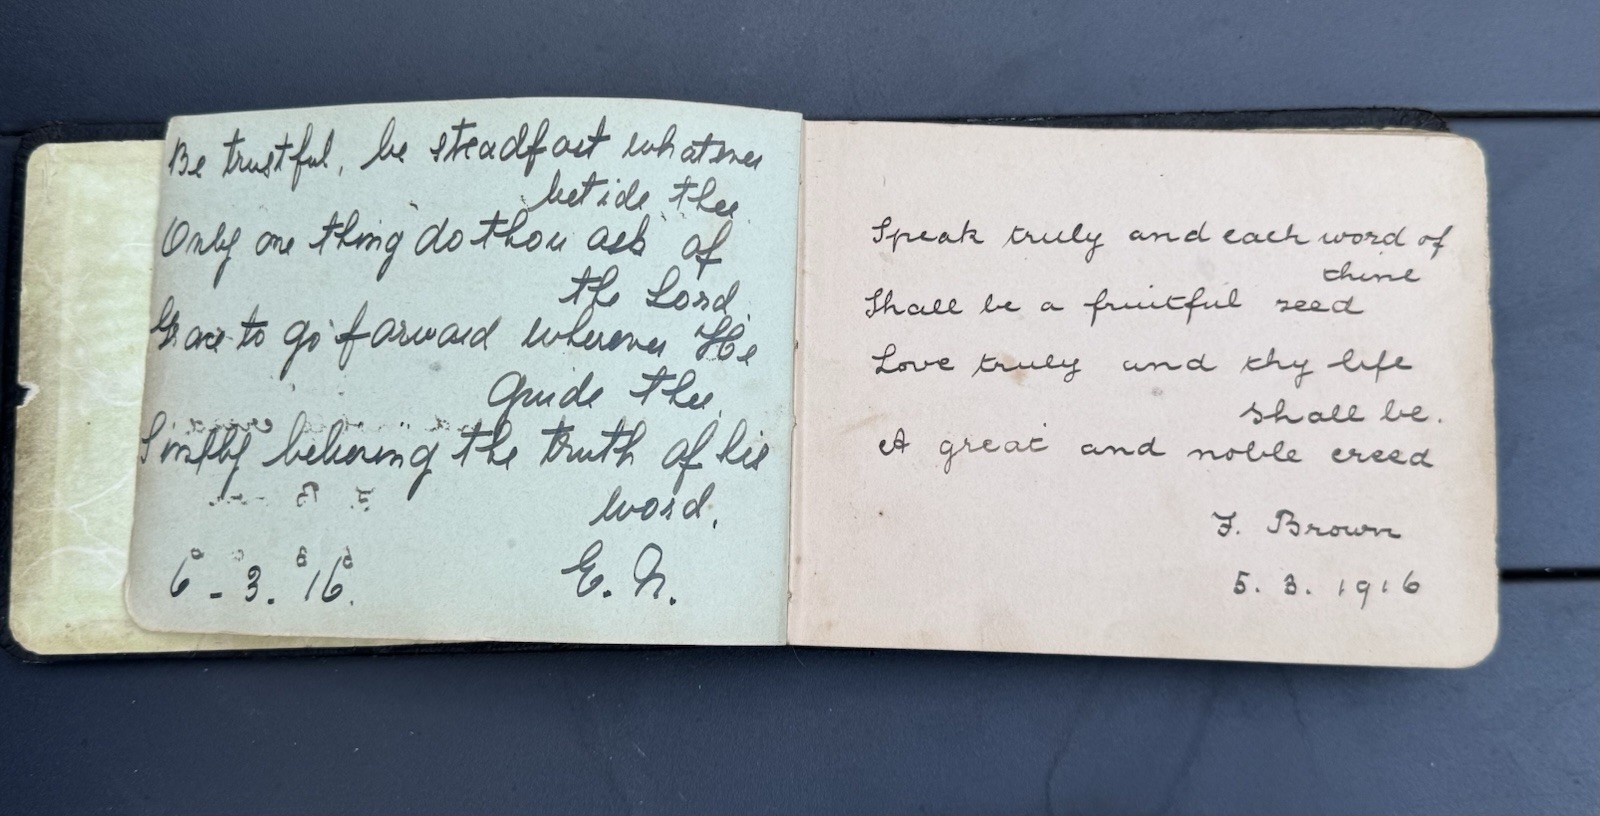 Be trustful, be steadfast whatever
betide thee
Only one thing do thou ask of
the Lord
Grace to go forward wherever He
guide thee
Simply believing the truth of his
word.
6 - 3. 16.
E. N.
Speak truly and each word of
thine
Shall be a fruitful seed
Love truly and thy life
shall be.
A great and noble creed
F. Brown
5. 3. 1916